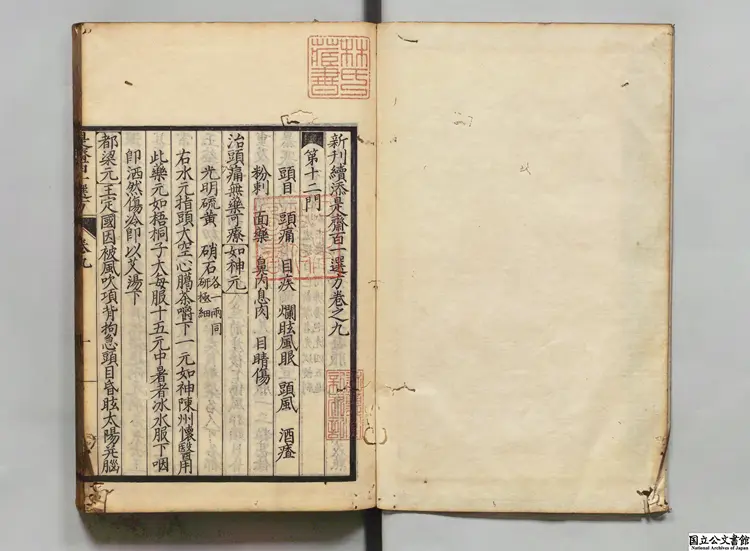 新刊續添是齋百一選方卷之九
第十二門
頭目 頭痛 目疾 爛眩風眼 頭風 酒皶
粉刺 面藥 鼻内息肉 目睛傷
治頭痛無藥可療 如神元
光明硫黃 硝石各一兩同研極細
右水元指頭大空心臈茶嚼下一元如神陳州懷醫用
此藥元如梧桐子大每服十五元中暑者冰水服下咽
即洒然傷冷即以艾湯下
都梁元 王定國因被風吹項背拘急頭目昏眩太陽并腦
卷九
林氏藏書
国立公文書館
National Archives of Japan